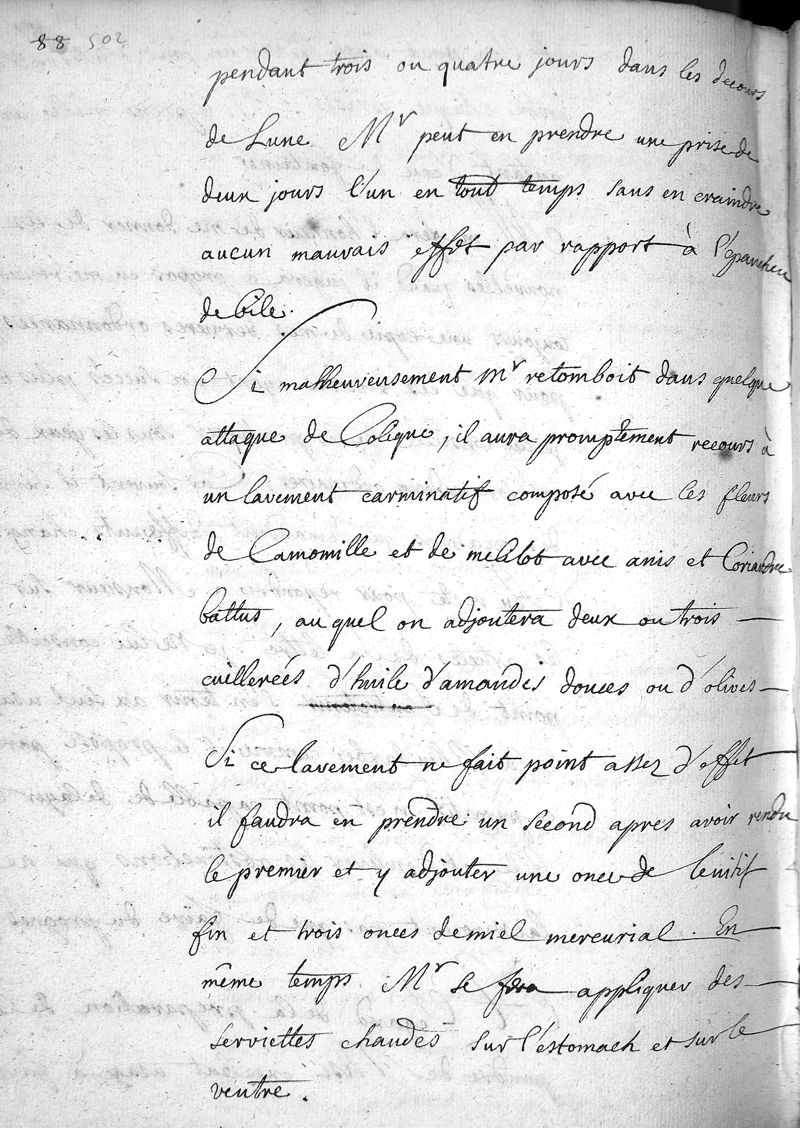 88 502
pendant trois ou quatre jours dans les decours
de Lune. Mr peut en prendre une prise de
deux jours l'un en tout temps sans en craindre
aucun mauvais effet par rapport à
de bile.
Si malheureusement Mr retomboit dans quelque
attaque de Colique, il aura promptement recours à
un lavement carminatif composé avec les fleurs
de Camomille et de melilot avec anis et Coriandre
battus, au quel on adjoutera deux ou trois
cuillereés d'huile d'amandes douces ou d'olives
Si ce lavement ne fait point assez d'effet
il faudra en prendre un second apres avoir rendu
le premier et y adjouter une once de lenitif
fin et trois onces de miel mercurial. En
même temps Mr se fera appliquer des
serviettes chaudes sur l'estomach et sur le
ventre.